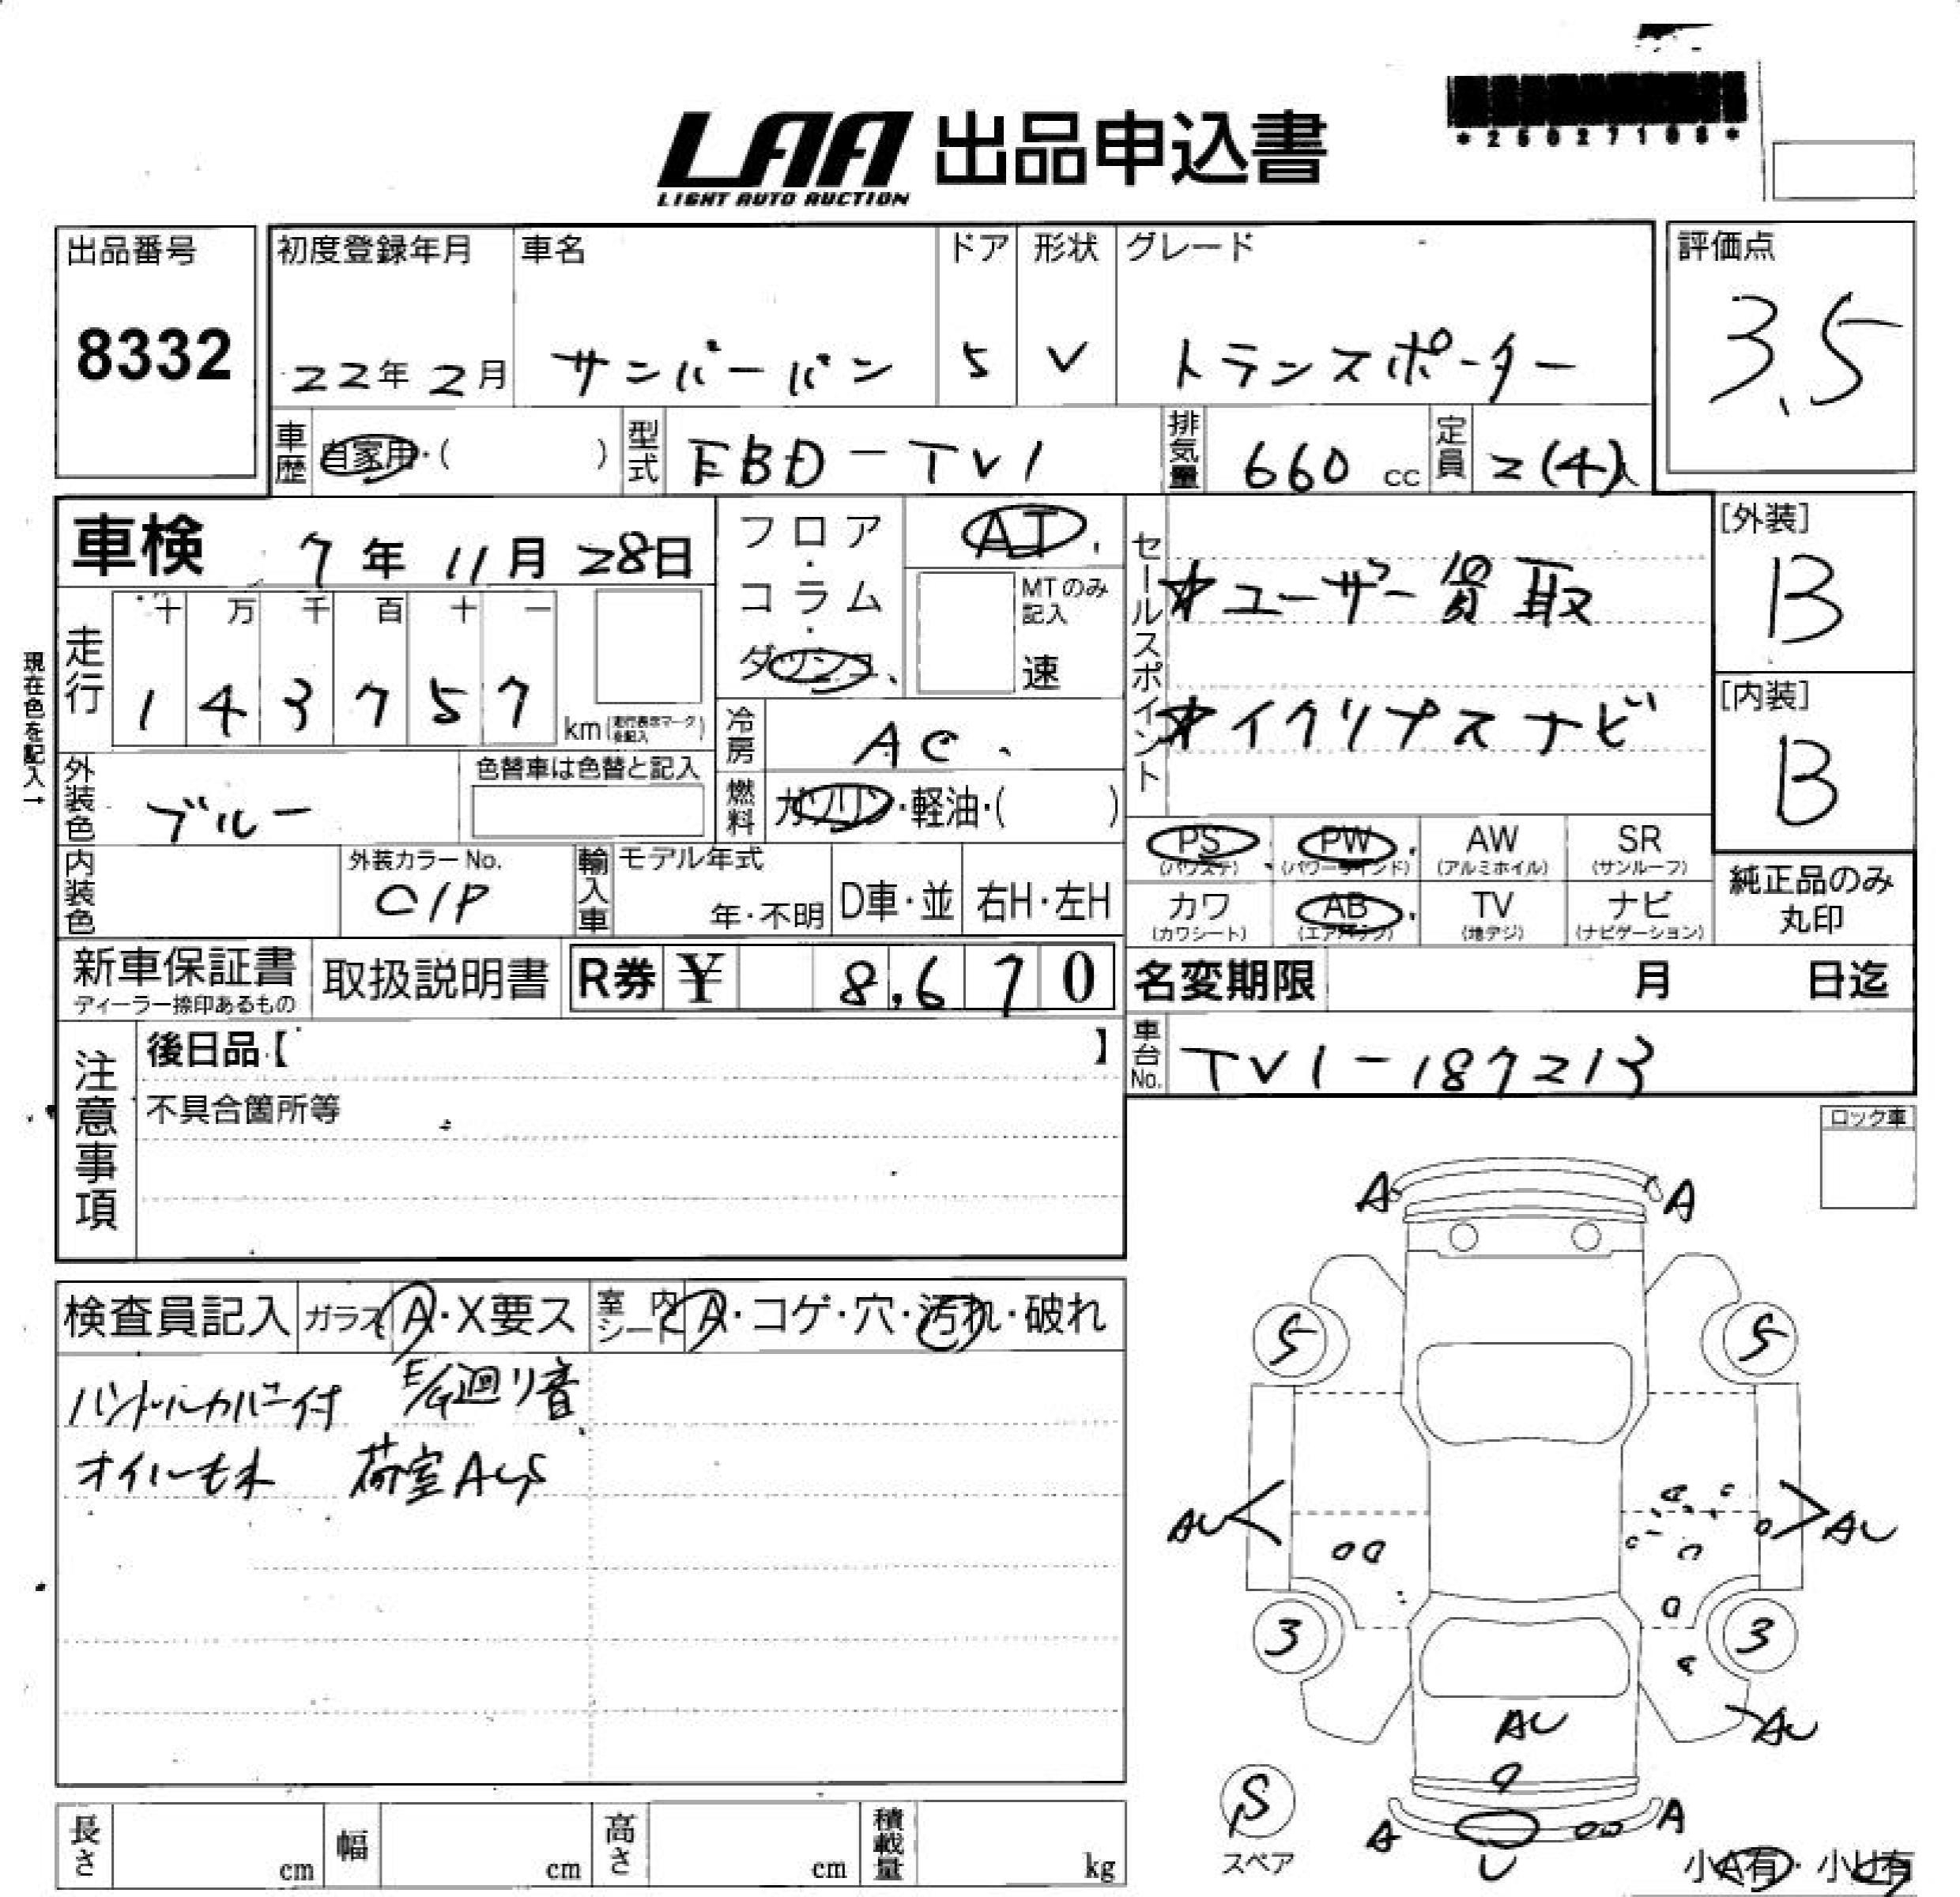 *25027106*
LAA 出品申込書
LIGHT AUTO AUCTION
出品番号 初度登録年月 車名 ドア 形状 グレード 評価点
8332 22年 2月 サンバーバン 5 V トランスポーター 3.5
車歴 自家用・( ) 型式 EBD-TV1 排気量 660 cc 定員 2(4)人
車検 7年 11月 28日
フロア・コラム・ダッシュ
AT
MTのみ記入
速
セールスポイント
★ユーザー買取
★イクリプスナビ
[外装]
B
[内装]
B
現在色を記入→
走行 十 万 千 百 十 一
1 4 3 7 5 7 km
冷房 AC
燃料 ガソリン・軽油・( )
外装色 ブルー 色替車は色替と記入
内装色 外装カラーNo. 01P 輸入車 モデル年式 年・不明 D車・並 右H・左H
PS (パワステ) PW (パワーウインド) AW (アルミホイル) SR (サンルーフ)
カワ (カワシート) AB (エアバッグ) TV (地デジ) ナビ (ナビゲーション)
純正品のみ
丸印
新車保証書 ディーラー捺印あるもの 取扱説明書 R券 ¥ 8,670 名変期限 月 日迄
車台No. TV1-187213
注意事項
後日品【 】
不具合箇所等
ロック車
検査員記入 ガラス A・X要ス 室内シート A・コゲ・穴・汚れ・破れ
ハンドルカバー付 E/G廻り音
オイルモレ 荷室AUS
A A
5 5
AU AU
3 3
AU AU
S
スペア
A A
U
小A有・小U有
長さ cm 幅 cm 高さ cm 積載量 kg